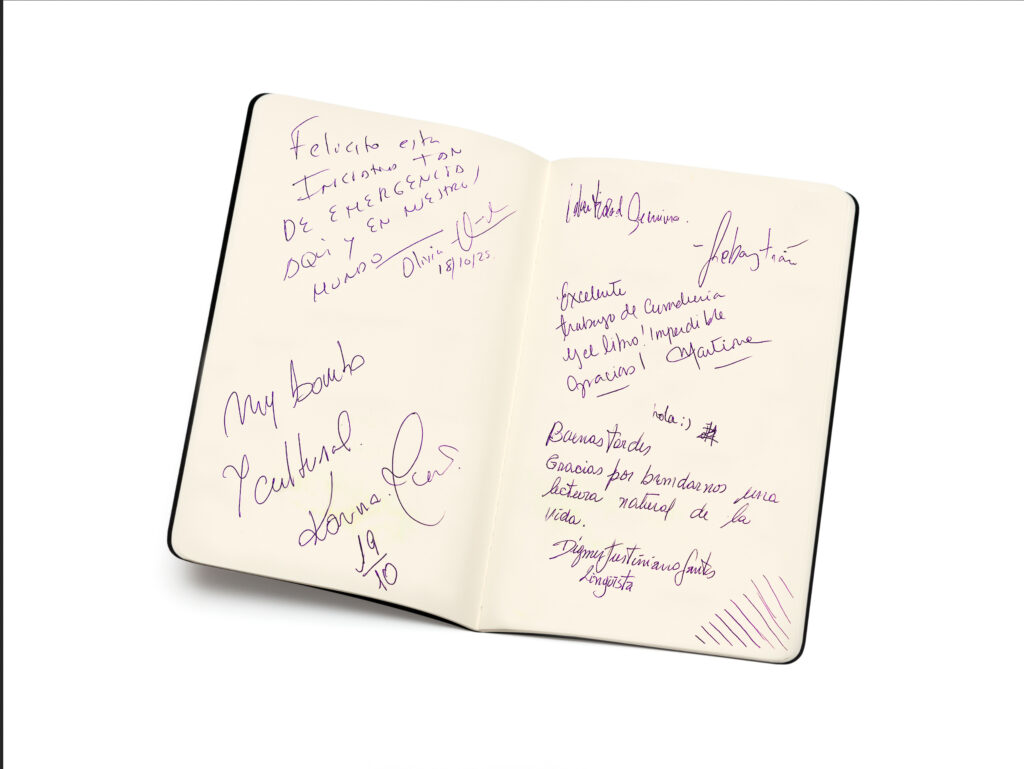 Felicito esta
Iniciativa Tan
DE EMERGENCIA
AQUI Y EN NUESTRO
MUNDO
Olivia
18/10/25.
Muy bonito
Y cultural.
Karina.
19/10
Identidad Genuina.
- Sebastián
Excelente
trabajo de Curaduria
y el libro! Imperdible
Gracias! Martina
hola :)
Buenas Tardes
Gracias por brindarnos una
lectura natural de la
vida.
Justiniano
Lingüista